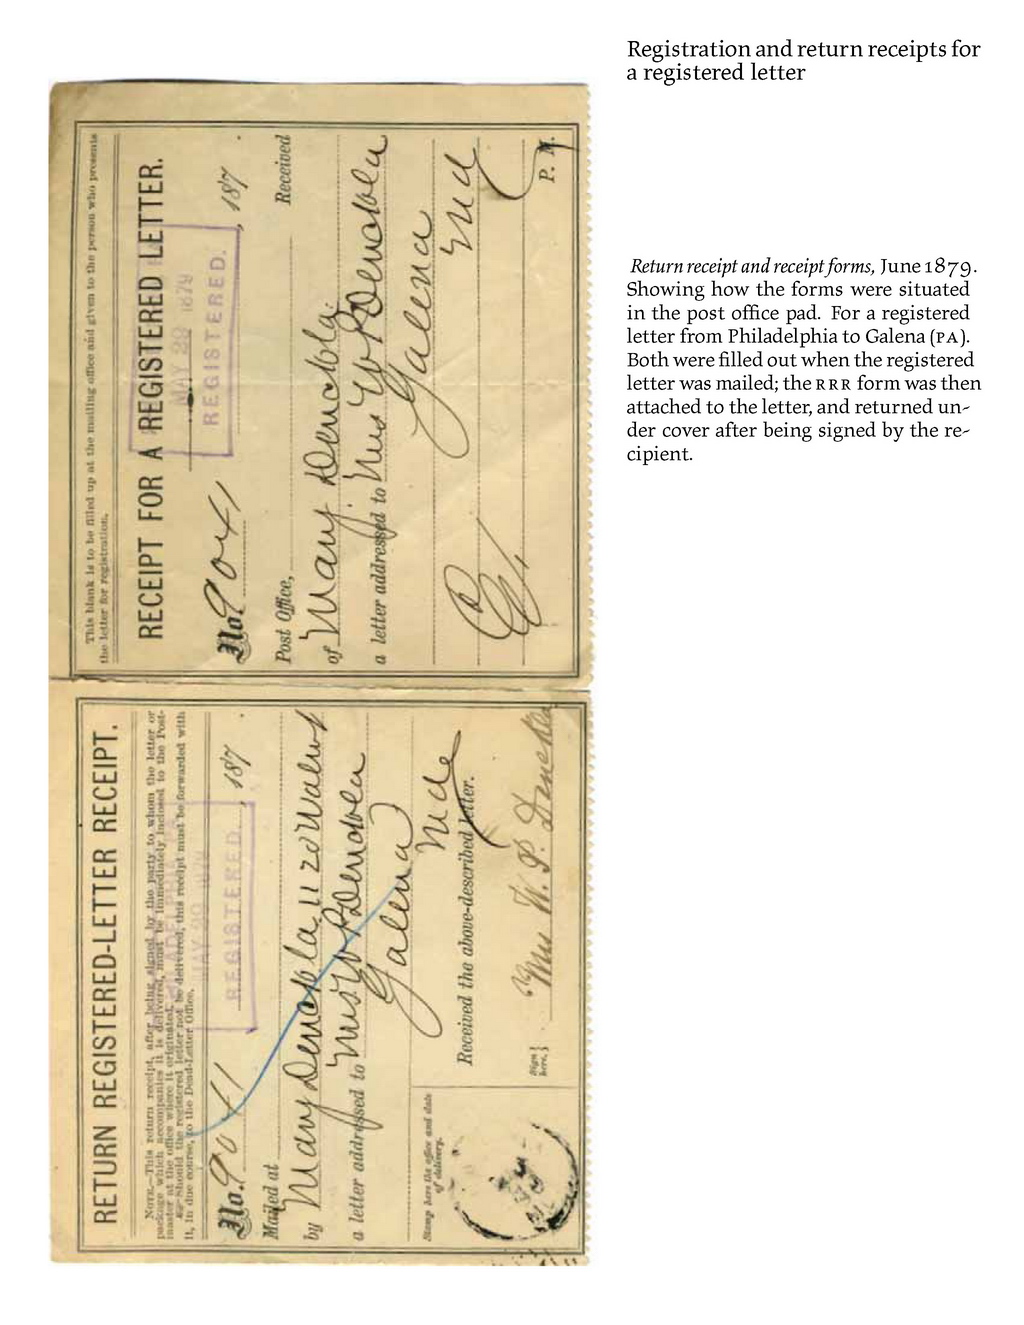 Registration and return receipts for
a registered letter
Return receipt and receipt forms, June 1879.
Showing how the forms were situated
in the post office pad. For a registered
letter from Philadelphia to Galena (PA).
Both were filled out when the registered
letter was mailed; the RRR form was then
attached to the letter, and returned un-
der cover after being signed by the re-
cipient.
This blank is to be filled up at the mailing office and given to the person who presents
the letter for registration.
RECEIPT FOR A REGISTERED LETTER.
MAY 29 1879
REGISTERED.
No. 9041 , 187 .
Post Office, Received
of Mary Denckla
a letter addressed to Mrs W P Denckla
Galena
Md
P. M.
RETURN REGISTERED-LETTER RECEIPT.
NOTE.—This return receipt, after being signed by the party to whom the letter or
package which accompanies it is delivered, must be immediately inclosed to the Post-
master at the office where it originated.
Should the registered letter not be delivered, this receipt must be forwarded with
it, in due course, to the Dead-Letter Office.
REGISTERED.
No. 9041 , 187 .
Mailed at
by Mary Denckla 1120 Walnut
a letter addressed to Mrs W P Denckla
Galena
Md
Received the above-described letter.
Stamp here the office and date
of delivery.
Sign
here.
Mrs W. P. Denckla